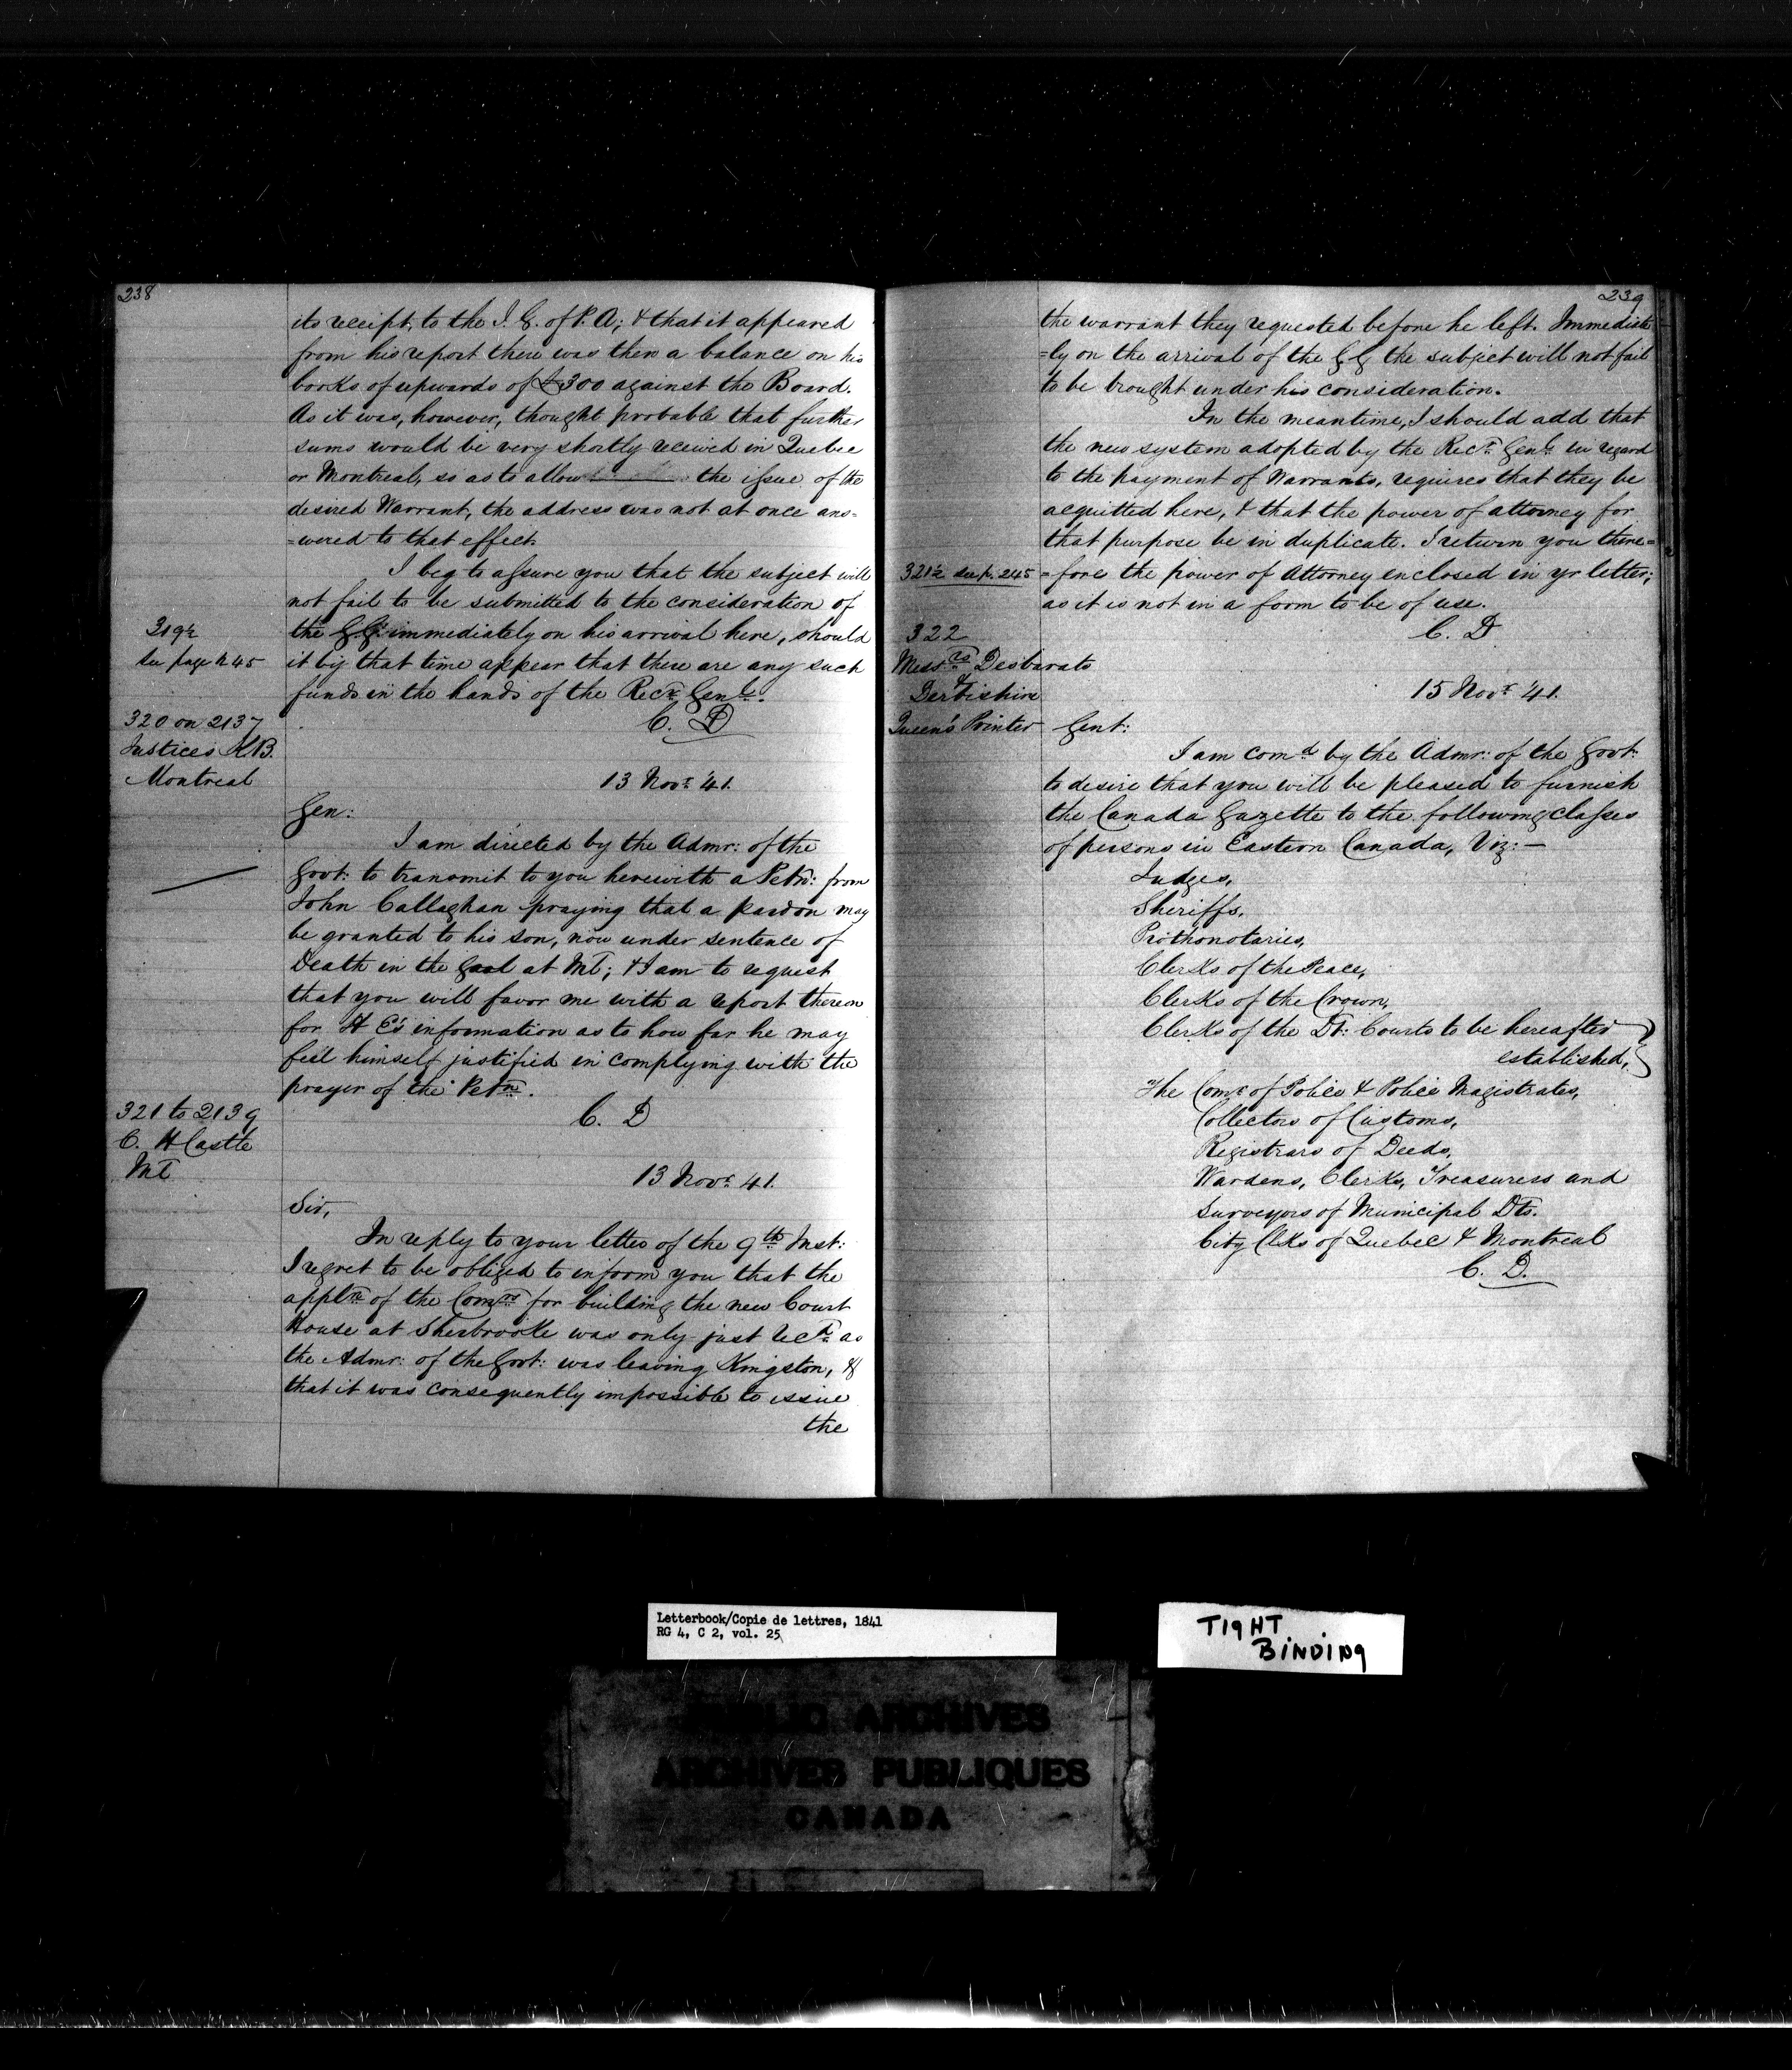 238
its receipt, to the I. G. of P. A; & that it appeared
from his report there was then a balance on his
books of upwards of £300 against the Board.
As it was, however, thought probable that further
sums would be very shortly received in Quebec
or Montreal, so as to allow the issue of the
desired Warrant, the address was not at once ans=
=wered to that effect.
I beg to assure you that the subject will
not fail to be submitted to the consideration of
319½
see page 245
the GG immediately on his arrival here, should
it by that time appear that there are any such
funds in the hands of the Recr. Genl.
C. D
320 on 2137
Justices K.B.
Montreal
13 Novr. '41.
Gen:
I am directed by the Admr: of the
Govt: to transmit to you herewith a Petn: from
John Callaghan praying that a pardon may
be granted to his son, now under sentence of
Death in the Gaol at Ml; & I am to request
that you will favor me with a report thereon
for H E's information as to how far he may
feel himself justified in complying with the
prayer of the Petn.
C. D
321 to 2139
C. H Castle
Ml
13 Novr. 41.
Sir,
In reply to your letter of the 9th Inst:
I regret to be obliged to inform you that the
appln of the Comrs for building the new Court
House at Sherbrooke was only just recd. as
the Admr: of the Govt: was leaving Kingston, &
that it was consequently impossible to issue
the
239
the warrant they requested before he left. Immediate
=ly on the arrival of the GG the subject will not fail
to be brought under his consideration.
In the meantime, I should add that
the new system adopted by the Recr. Genl. in regard
to the payment of Warrants, requires that they be
acquitted here, & that the power of attorney for
that purpose be in duplicate. I return you there=
321½ see p. 245
=fore the power of Attorney enclosed in yr letter;
as it is not in a form to be of use.
C. D
322
Messrs Desbarats
& Derbishire
Queen's Printer
15 Novr. '41.
Gent:
I am comd by the Admr: of the Govt:
to desire that you will be pleased to furnish
the Canada Gazette to the following classes
of persons in Eastern Canada, Viz: —
Judges,
Sheriffs,
Prothonotaries,
Clerks of the Peace,
Clerks of the Crown,
Clerks of the Dt: Courts to be hereafter
established,
The Comr of Police & Police Magistrates,
Collectors of Customs,
Registrars of Deeds,
Wardens, Clerks, Treasurers and
Surveyors of Municipal Dts.
City Clks of Quebec & Montreal
C. D.
Letterbook/Copie de lettres, 1841
RG 4, C 2, vol. 25
TIGHT
BINDING
PUBLIC ARCHIVES
ARCHIVES PUBLIQUES
CANADA